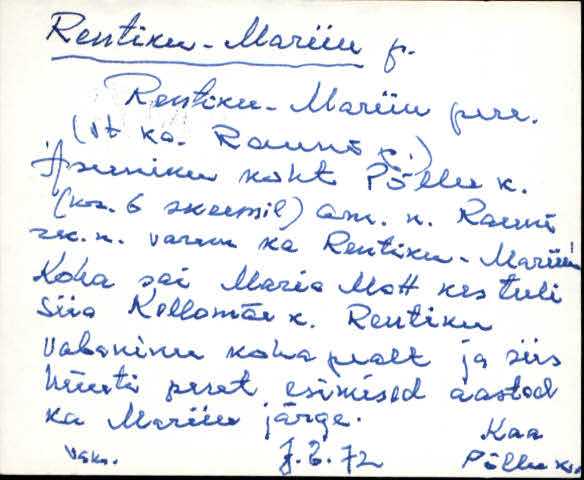 Rentiku-Mariiu p.
Rentiku-Mariiu pere.
(vt ka. Raunö p.)
Asuniku koht Põllu k.
(kr. 6 skeemil) am. n. Raunö
rk. n. varem ka Rentiku-Mariiu
Koha sai Maria Mott kes tuli
siia Kellamäe k. Rentiku
vabaniku koha pealt ja siis
hüuti peret esimised aastad
ka Mariiu järge.
Kaa
Vako. J. T. 72 Põllu k.